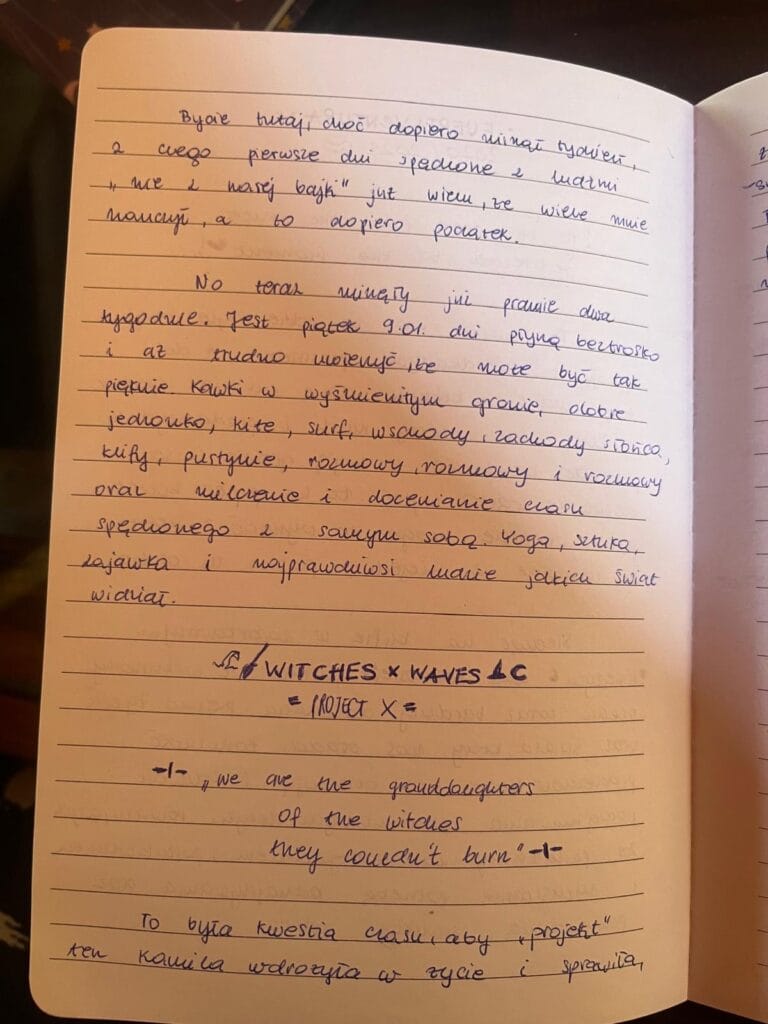 Bycie tutaj, choć dopiero minął tydzień,
z czego pierwsze dni spędzone z ludźmi
„nie z naszej bajki" już wiem, że wiele mnie
nauczył, a to dopiero początek.
No teraz minęły już prawie dwa
tygodnie. Jest piątek 9.01. dni płyną beztrosko
i aż trudno uwierzyć, że może być tak
pięknie. Kawki w wyśmienitym gronie, dobre
jedzonko, kite, surf, wschody, zachody słońca,
klify, pustynie, rozmowy, rozmowy i rozmowy
oraz milczenie i docenianie czasu
spędzonego z samym sobą. Yoga, sztuka,
zajawka i najprawdziwsi ludzie jakich świat
widział.
WITCHES x WAVES
= PROJECT X =
„we are the granddaughters
Of the witches
they couldn't burn"
To była kwestia czasu, aby „projekt"
ten Kamila wdrożyła w życie i sprawiła,